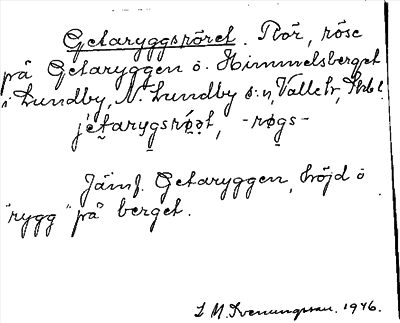 Getaryggsröret. Rör, röse
på Getaryggen ö. Himmelsberget
i Lundby, N. Lundby s:n, Valle hr, Skbl.
jètarygsrø̀ət, -røgs-
Jämf. Getaryggen, höjd ö
"rygg" på berget.
S M Svenungsson. 1946.